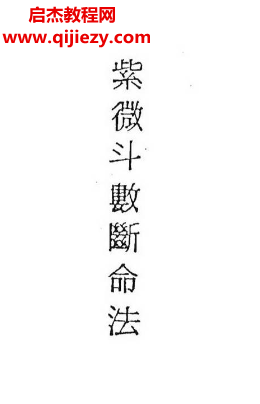 启杰教程网
www.qijiezy.com
紫微斗數斷命法